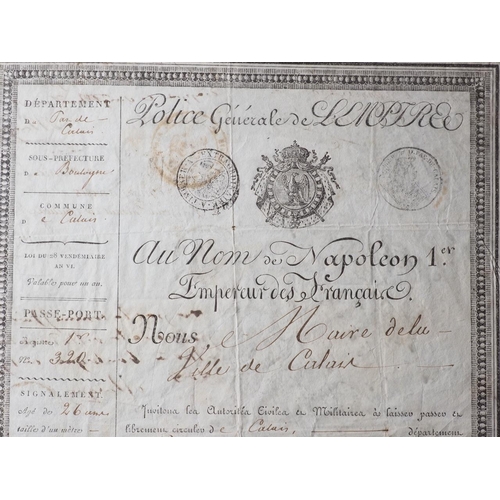 Police Générale de L'EMPIRE
DÉPARTEMENT
D Pas de
Calais
SOUS-PRÉFECTURE
D e Boulogne
COMMUNE
D e Calais
LOI DU 28 VENDÉMIAIRE
AN VI
Valables pour un an.
PASSE-PORT
Registre 1er
N.o 320
SIGNALEMENT
Agé de 26 ans
taille d'un mètre
Au Nom de Napoléon 1.er
Empereur des Français.
Nous, Maire de la
Ville de Calais
Invitons les Autorités Civiles et Militaires à laisser passer et
librement circuler de Calais, département